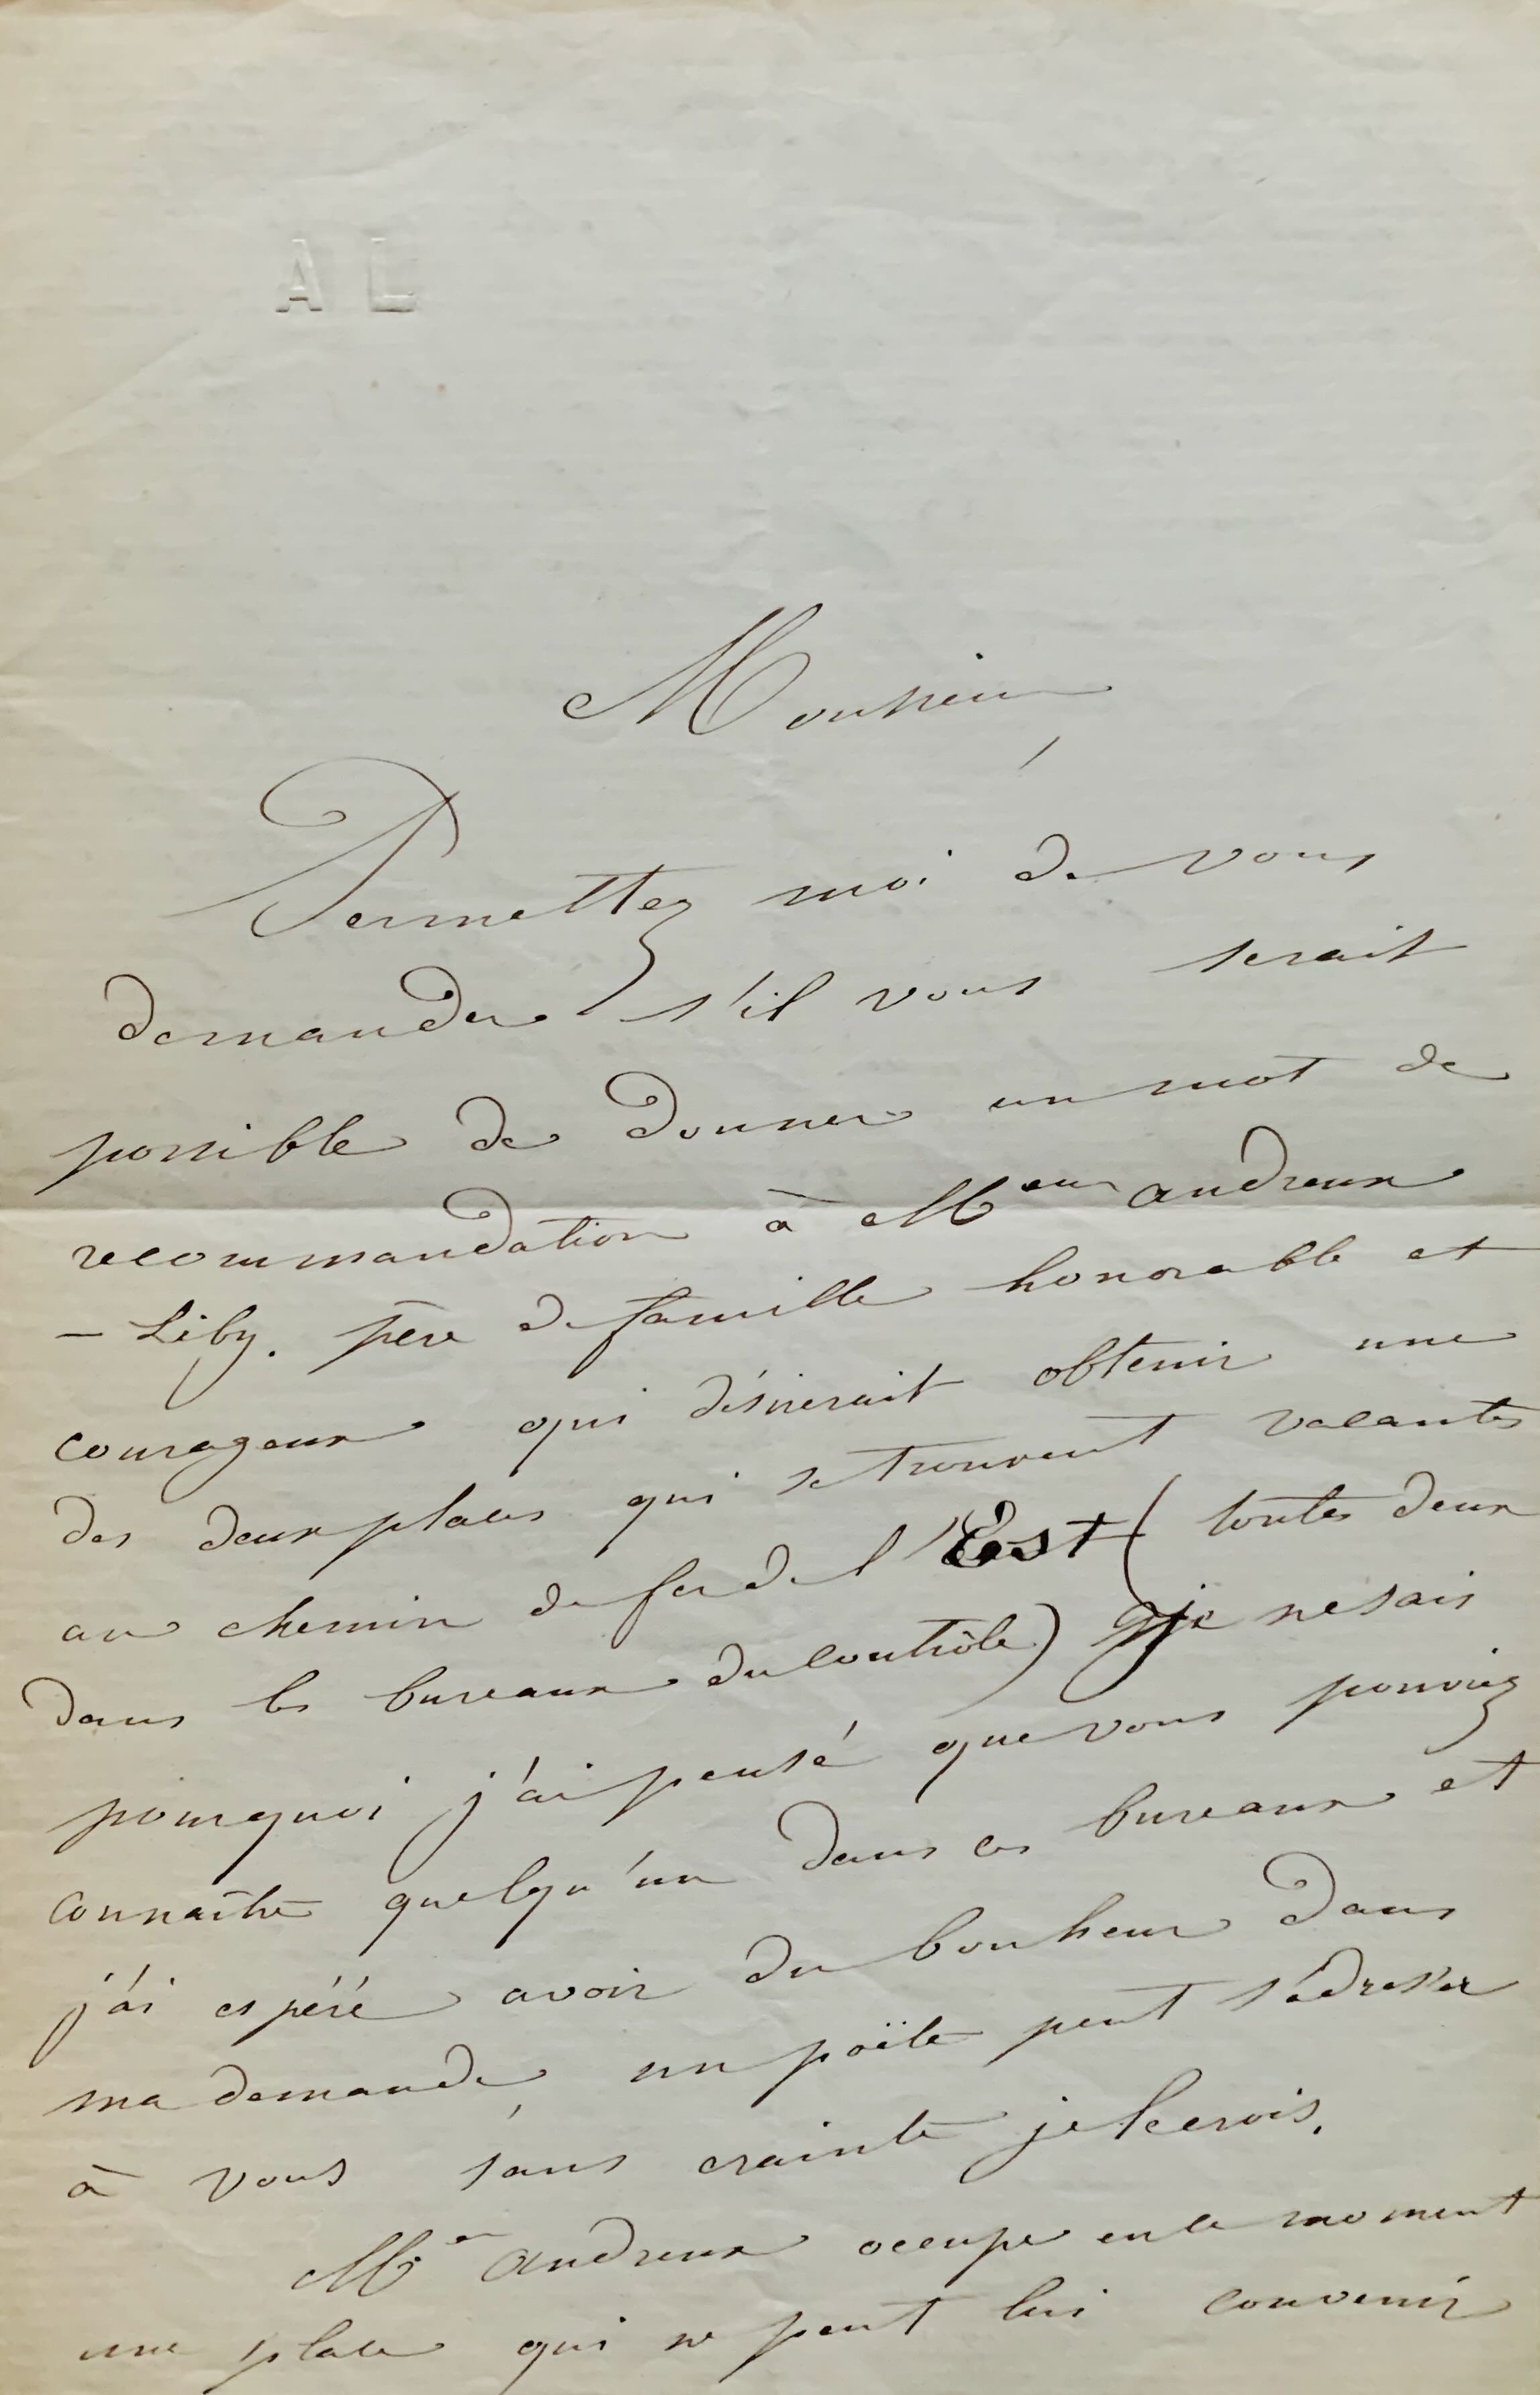 A L
Monsieur
,
Permettez moi de vous
demander s'il vous serait
possible de donner un mot de
recommandation à Meur andreux
– Liby. père de famille honorable et
courageux qui désirerait obtenir une
des deux places qui se trouvent vacantes
au chemin de fer de l'Est (toutes deux
dans les bureaux du Contrôle) je ne sais
pourquoi j'ai pensé que vous pouviez
connaître quelqu'un dans ces bureaux et
j'ai espéré avoir du bonheur dans
ma demande, un poëte peut s'adresser
à vous sans crainte je le crois.
Mr andreux occupe en ce moment
une place qui ne peut lui convenir